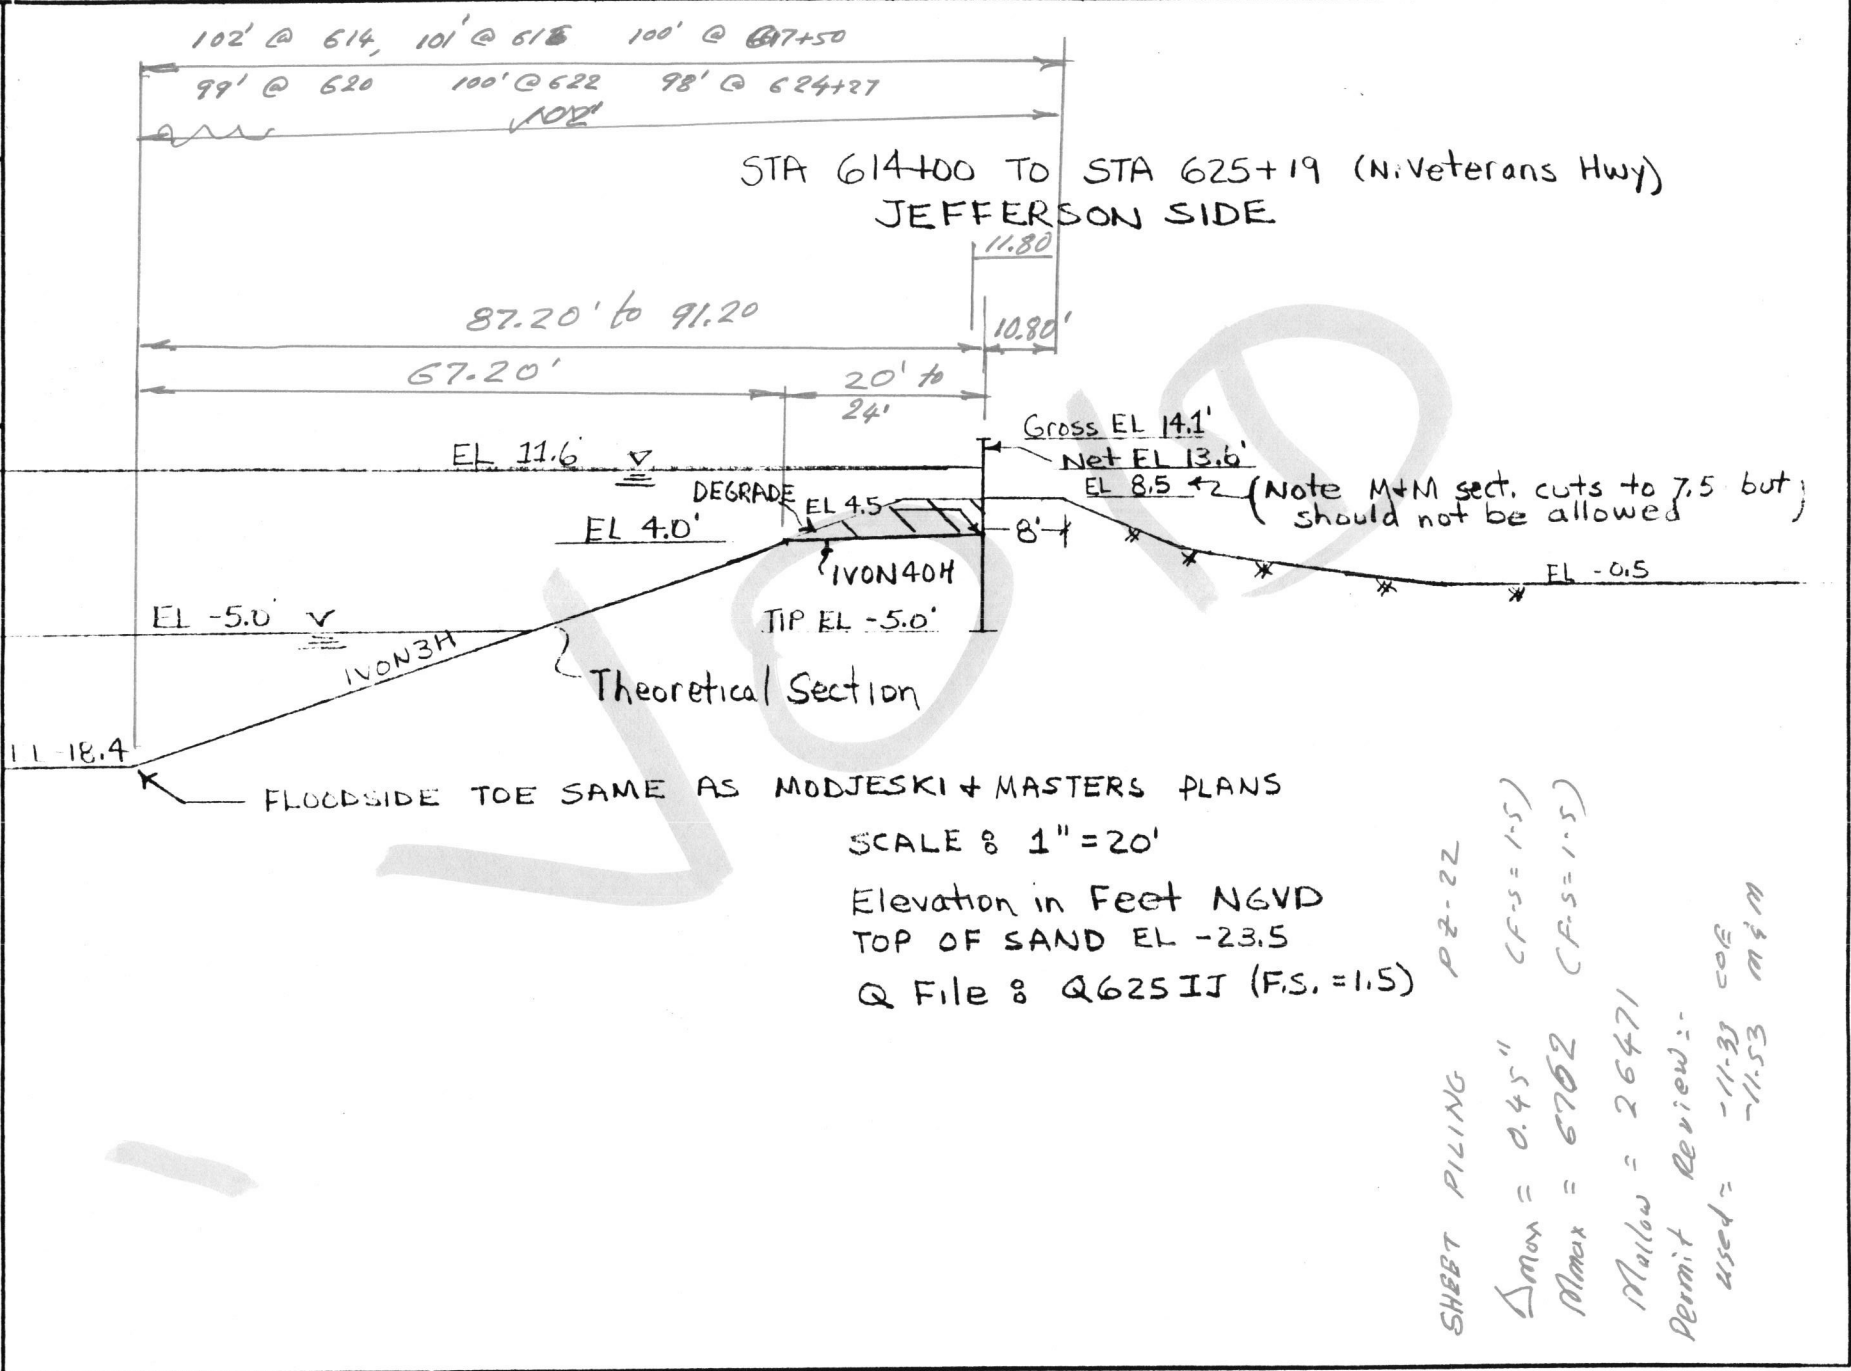 102' @ 614, 101' @ 616 100' @ 617+50
99' @ 620 100' @ 622 98' @ 624+27
102'
STA 614+00 TO STA 625+19 (N. Veterans Hwy)
JEFFERSON SIDE
11.80
87.20' to 91.20
10.80'
67.20'
20' to
24'
Gross EL 14.1'
EL 11.6
Net EL 13.6'
EL 8.5 (Note M+M sect. cuts to 7.5 but
should not be allowed)
DEGRADE
EL 4.5
EL 4.0'
8'
1VON40H
EL -0.5
EL -5.0'
TIP EL -5.0'
1VON3H
Theoretical Section
-18.4
FLOODSIDE TOE SAME AS MODJESKI + MASTERS PLANS
SCALE : 1" = 20'
Elevation in Feet NGVD
TOP OF SAND EL -23.5
Q File : Q625IJ (F.S. = 1.5)
SHEET PILING PZ-22
Δmax = 0.45" (F.S = 1.5)
Mmax = 6762 (F.S = 1.5)
Mallow = 26471
Permit Review:-
used = -11.33 COE
-11.53 M&M
VOID